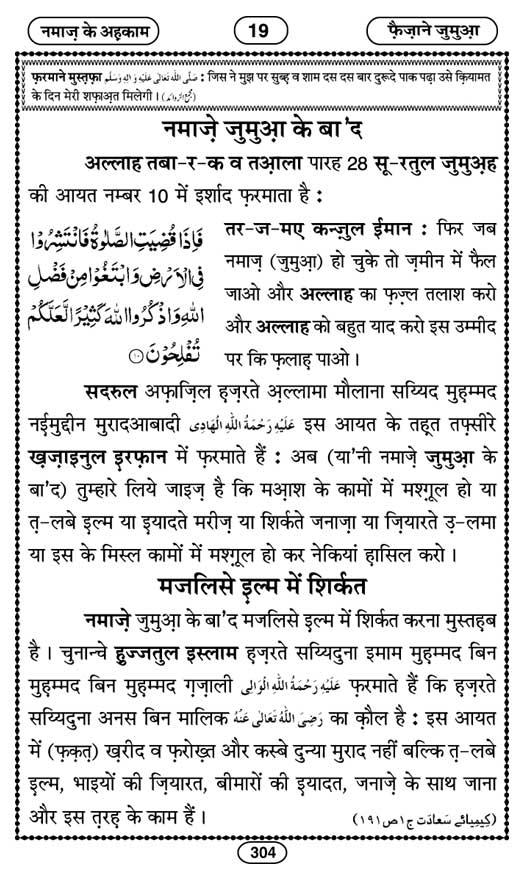 नमाज़ के अहकाम
19
फ़ैज़ाने जुमुआ़
फ़रमाने मुस्तफ़ा صَلَّى اللهُ تَعَالٰى عَلَيْهِ وَاٰلِهٖ وَسَلَّم : जिस ने मुझ पर सुब्ह़ व शाम दस दस बार दुरूदे पाक पढ़ा उसे क़ियामत
के दिन मेरी शफ़ाअ़त मिलेगी । (مجمع الزوائد)
नमाज़े जुमुआ़ के बा'द
अल्लाह तबा-र-क व तआ़ला पारह 28 सू-रतुल जुमुअ़ह
की आयत नम्बर 10 में इर्शाद फ़रमाता है :
فَاِذَا قُضِيَتِ الصَّلٰوةُ فَانْتَشِرُوْا
فِى الْاَرْضِ وَابْتَغُوْا مِنْ فَضْلِ
اللّٰهِ وَاذْكُرُوا اللّٰهَ كَثِيْرًا لَّعَلَّكُمْ
تُفْلِحُوْنَ ﴿۱۰﴾
तर-ज-मए कन्ज़ुल ईमान : फिर जब
नमाज़ (जुमुआ़) हो चुके तो ज़मीन में फैल
जाओ और अल्लाह का फ़ज़्ल तलाश करो
और अल्लाह को बहुत याद करो इस उम्मीद
पर कि फ़लाह़ पाओ ।
सदरुल अफ़ाज़िल ह़ज़रते अ़ल्लामा मौलाना सय्यिद मुह़म्मद
नई़मुद्दीन मुरादआबादी عَلَيْهِ رَحْمَةُ اللهِ الْهَادِى इस आयत के तह़्त तफ़्सीरे
ख़ज़ाइनुल इ़रफ़ान में फ़रमाते हैं : अब (या'नी नमाज़े जुमुआ़ के
बा'द) तुम्हारे लिये जाइज़ है कि मआ़श के कामों में मश्ग़ूल हो या
त़-लबे इ़ल्म या इ़यादते मरीज़ या शिर्कते जनाज़ा या ज़ियारते उ़-लमा
या इस के मिस्ल कामों में मश्ग़ूल हो कर नेकियां ह़ासिल करो ।
मजलिसे इ़ल्म में शिर्कत
नमाज़े जुमुआ़ के बा'द मजलिसे इ़ल्म में शिर्कत करना मुस्तह़ब
है । चुनान्चे हुज्जतुल इस्लाम ह़ज़रते सय्यिदुना इमाम मुह़म्मद बिन
मुह़म्मद बिन मुह़म्मद ग़ज़ाली عَلَيْهِ رَحْمَةُ اللهِ الْوَالِى फ़रमाते हैं कि ह़ज़रते
सय्यिदुना अनस बिन मालिक رَضِىَ اللهُ تَعَالٰى عَنْهُ का क़ौल है : इस आयत
में (फ़क़त़) ख़रीद व फ़रोख़्त और कस्बे दुन्या मुराद नहीं बल्कि त़-लबे
इ़ल्म, भाइयों की ज़ियारत, बीमारों की इ़यादत, जनाज़े के साथ जाना
और इस त़रह़ के काम हैं । (کیمیائے سعادت ج۱ص۱۹۱)
304